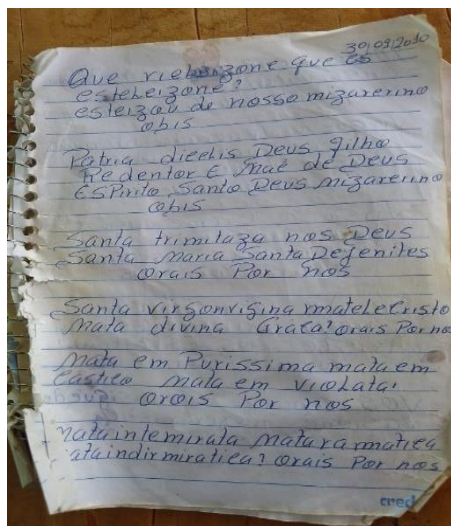 30/09/2010
Que rieleizone que es
esteleizone?
esleizou de nosso mizarerino
obis
Patria dieelis Deus filho
Redentor E Mãe de Deus
Espirito Santo Deus mizarerino
obis
Santa trimilaza nos Deus
Santa Maria Santa Dejenites
orais Por nos
Santa virgonvigina matelecristo
Mata divina Graca! orais Por no
Mata em Purissima mata em
Castico Mata em violata!
orois Por nos
Mataintemirata Matura matica
ataindirmiratica? orais Por nos
cred